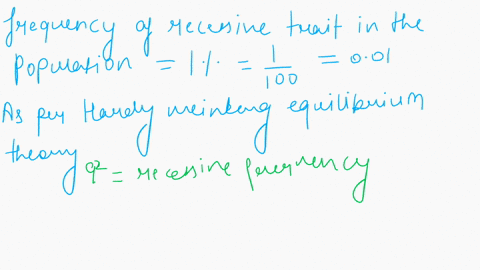 frequency of recessive trait in the
population = 1% = 1/100 = 0.01
As per Hardy weinberg equilibrium
theory
q² = recessive frequency